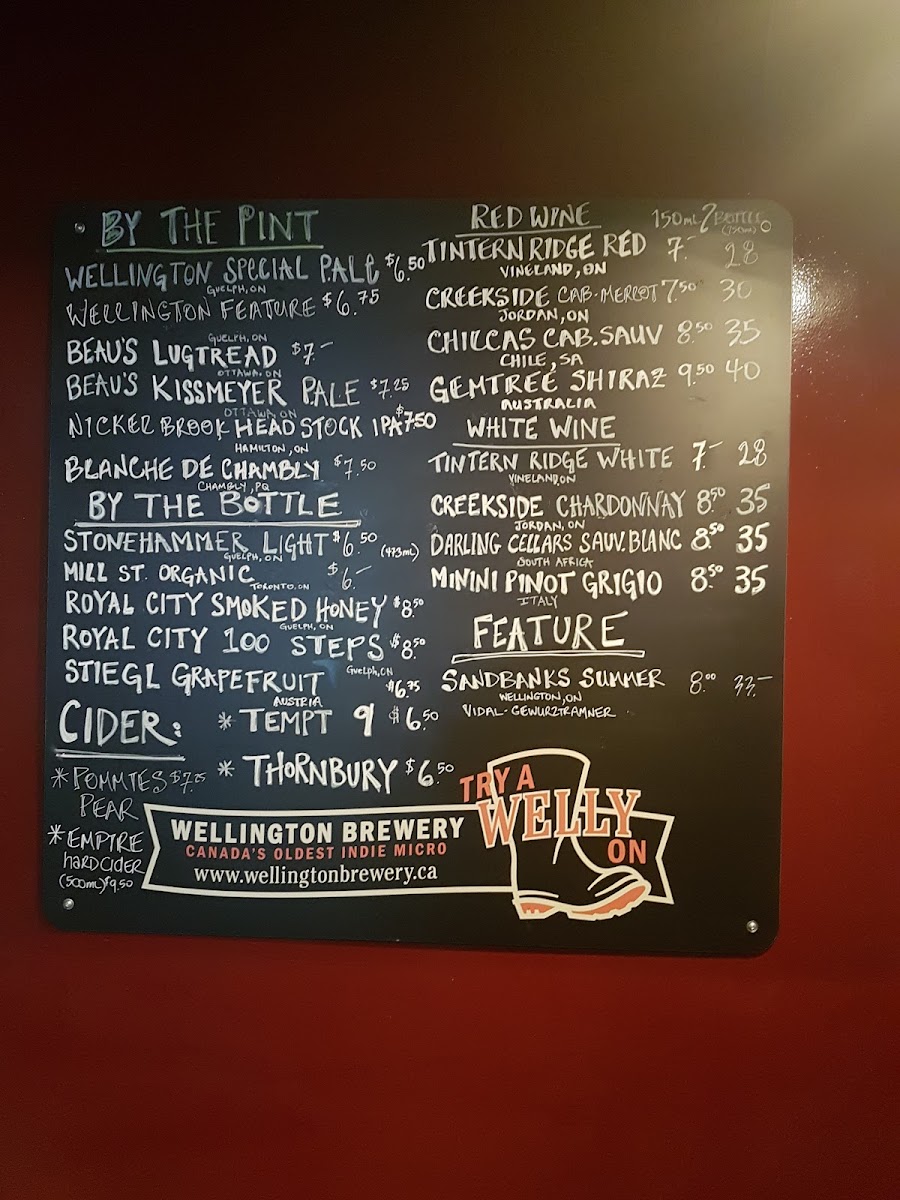 BY THE PINT
WELLINGTON SPECIAL PALE $6.50
GUELPH, ON
WELLINGTON FEATURE $6.75
GUELPH, ON
BEAU'S LUGTREAD $7-
OTTAWA, ON
BEAU'S KISSMEYER PALE $7.25
OTTAWA, ON
NICKER BROOK HEADSTOCK IPA $7.50
HAMILTON, ON
BLANCHE DE CHAMBLY $7.50
CHAMBLY, PQ
BY THE BOTTLE
STONEHAMMER LIGHT $6.50 (473mL)
GUELPH, ON
MILL ST. ORGANIC $6.-
TORONTO, ON
ROYAL CITY SMOKED HONEY $8.50
GUELPH, ON
ROYAL CITY 100 STEPS $8.50
GUELPH, ON
STIEGL GRAPEFRUIT $6.75
AUSTRIA
CIDER:
* TEMPT 9 $6.50
* THORNBURY $6.50
* POMMIES $7.25
PEAR
* EMPIRE
HARD CIDER
(500mL) $9.50
RED WINE 150mL BOTTLE
(750mL)
TINTERN RIDGE RED 7.- 28
VINELAND, ON
CREEKSIDE CAB-MERLOT 7.50 30
JORDAN, ON
CHILCAS CAB. SAUV 8.50 35
CHILE, SA
GEMTREE SHIRAZ 9.50 40
AUSTRALIA
WHITE WINE
TINTERN RIDGE WHITE 7.- 28
VINELAND, ON
CREEKSIDE CHARDONNAY 8.50 35
JORDAN, ON
DARLING CELLARS SAUV. BLANC 8.50 35
SOUTH AFRICA
MININI PINOT GRIGIO 8.50 35
ITALY
FEATURE
SANDBANKS SUMMER 8.00 33.-
WELLINGTON, ON
VIDAL-GEWURZTRAMNER
WELLINGTON BREWERY
CANADA'S OLDEST INDIE MICRO
www.wellingtonbrewery.ca
TRY A
WELLY
ON